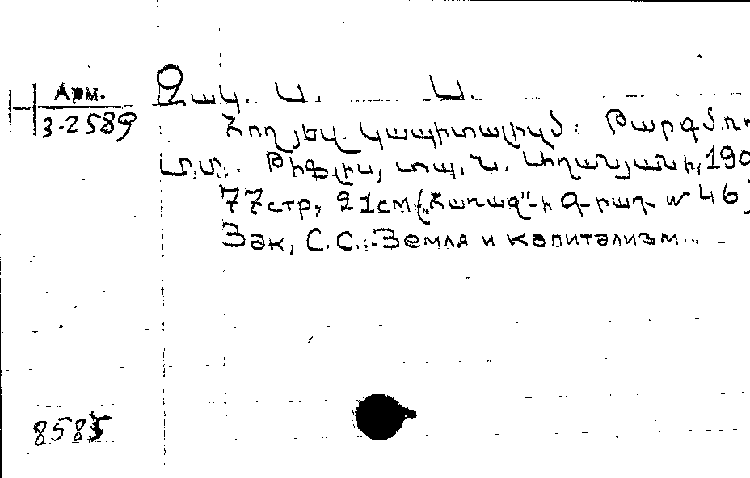 Арм.
3-2589
Զակ. Ս. Ս.
Հող յեվ կապիտալիզմ: Թարգմ. ռ
Թիֆլիս, տպ. Ն. Աղանյանի, 190
77стр, 21см („Հառազ“-ի Գրադ № 46)
Зак, С.С.: Земля и капитализм...
8585